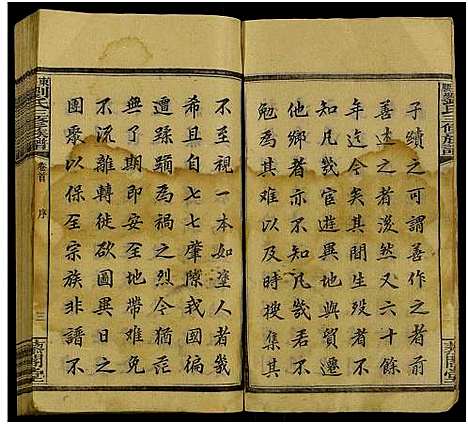 子續之可謂善作之
善述之者後然又六十餘
年迄今矣其間生歿者不
知凡幾宦遊異地與貿遷
他鄉者亦不知凡幾以是
勉為其難以及時搜集其
不至視一本如塗人者幾
希且自七七肇隙我國徧
遭蹂躪為禍之烈今猶茫
無了期即安至地帶難免
不流離轉徙欲圖異日之
團聚以保至宗族非譜不
劉氏三修族譜
卷首
序
三